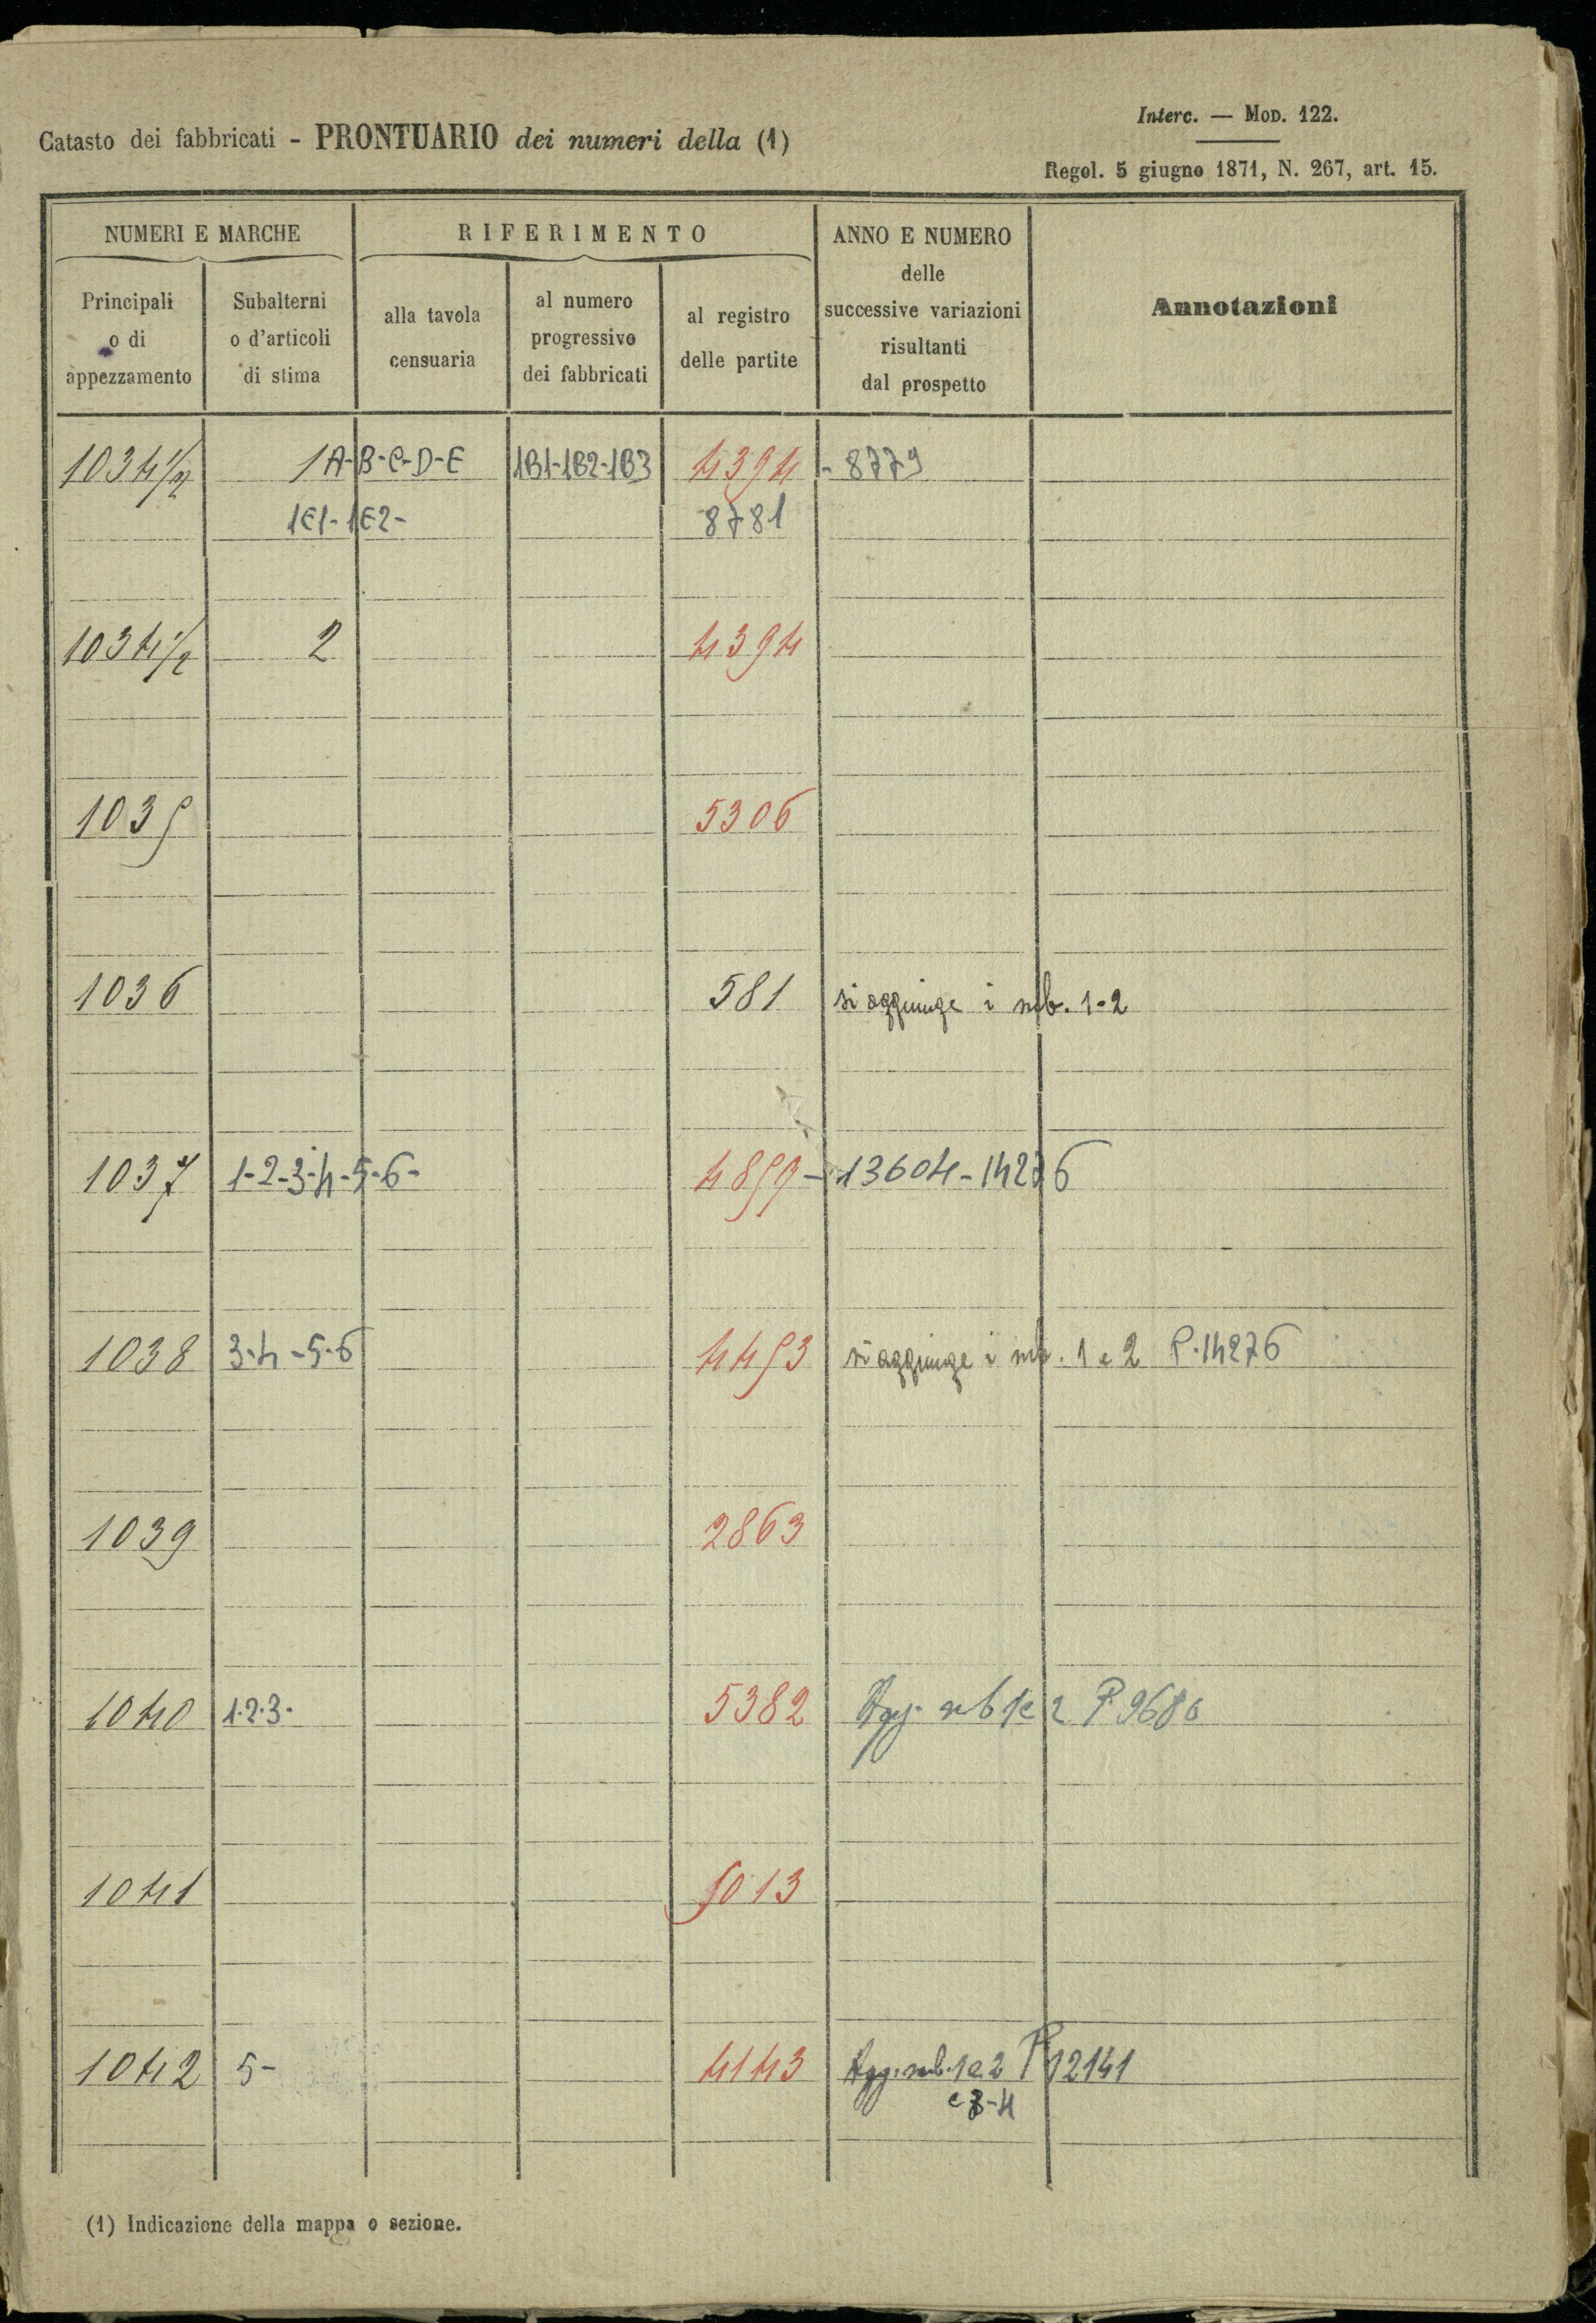 Interc. — Mod. 122.
Catasto dei fabbricati - PRONTUARIO dei numeri della (1)
Regol. 5 giugno 1871, N. 267, art. 15.
NUMERI E MARCHE
RIFERIMENTO
ANNO E NUMERO
delle
successive variazioni
risultanti
dal prospetto
Annotazioni
Principali
o di
appezzamento
Subalterni
o d'articoli
di stima
alla tavola
censuaria
al numero
progressivo
dei fabbricati
al registro
delle partite
1034 1/2 1A-B-C-D-E 1B1-1B2-1B3 4394 - 8779
1E1-1E2- 8781
1034 1/2 2 4394
1035 5306
1036 581 si aggiunge i sub. 1-2
1037 1-2-3-4-5-6- 4859 - 13604 - 14276
1038 3-4-5-6 4453 si aggiunge i sub. 1 e 2 P. 14276
1039 2863
1040 1.2.3. 5382 Agg. sub 1 e 2 P. 9680
1041 5013
1042 5- 4143 Agg. sub. 1 e 2 P 12141
e 3-4
(1) Indicazione della mappa o sezione.